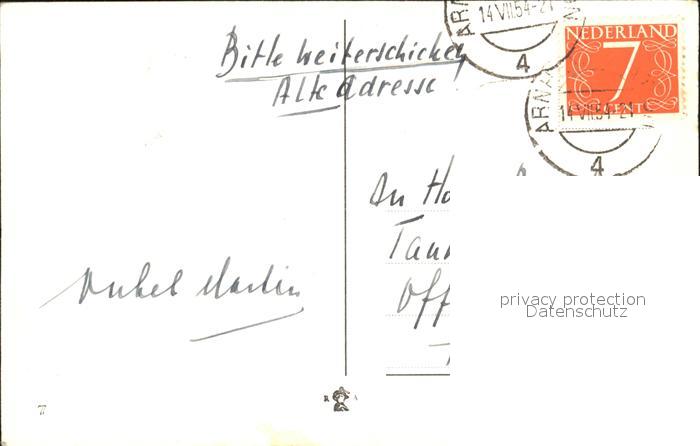 Bitte weiterschicken
Alte Adresse!
ARN
14 VII.54-21
4
NEDERLAND
7
CENT
ARN
14 VII.54-21
4
An
Onkel Martin
privacy protection
Datenschutz
R A